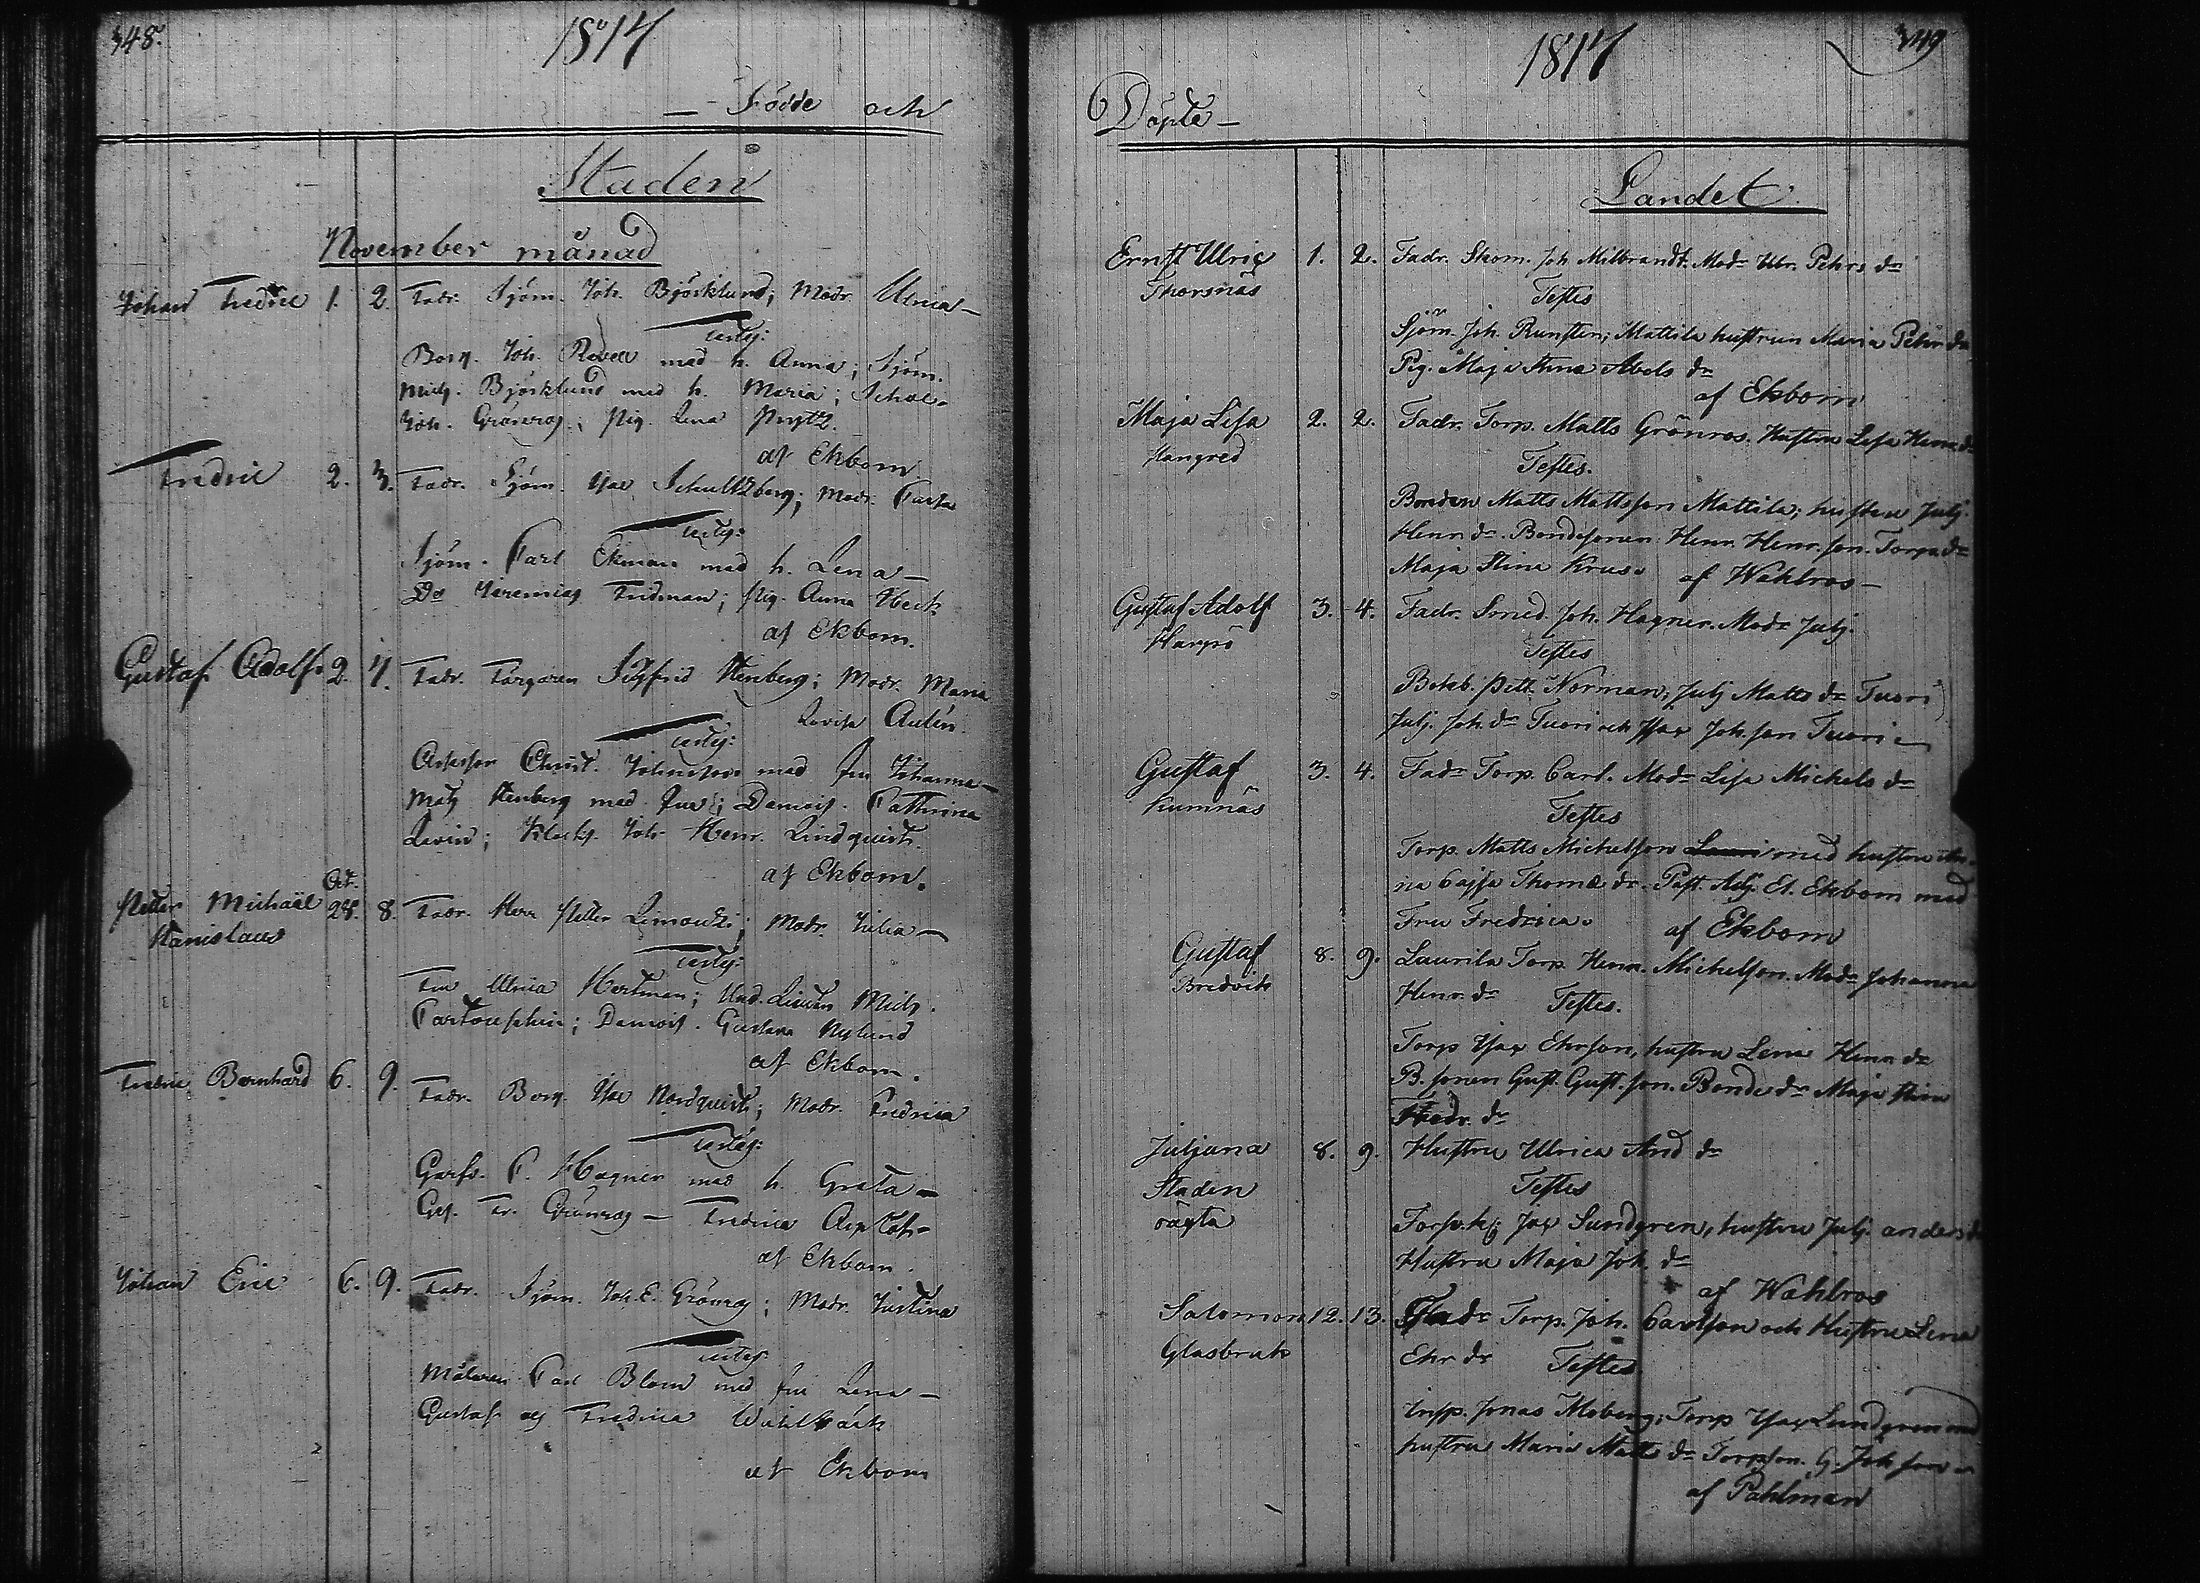 348.
1817
— Födde och
Staden
November månad
Johan Fredric 1. 2. Fadr. Sjöm. Joh. Björklund; Modr. Ulrica —
testes:
Borg. Joh. med h. Anna; Sjöm.
Mich. Björklund med h. Maria;
Joh. Grönros; Pig. Lena
af Ekbom
Fredric 2. 3. Fadr. Sjöm. Isac Schultzberg; Modr. Caisa
testes:
Sjöm. Carl Ekman med h. Lena —
Do Jeremias Fridman; Pig. Anna Beck
af Ekbom.
Gustaf Adolf 2. 7. Fadr. Färgaren Sigfrid Stenberg; Modr. Maria
Lovisa Aulén.
testes:
Assessor Christ. Johnsson med fru Johanna —
Mats Stenberg med fru; Demois. Cathrina
Levin; Joh. Henr. Lindquist.
af Ekbom.
Petter Michaël Oct. 28. 8. Fadr. Herr Petter; Modr. Julia —
Stanislaus
testes:
Fru Ulrica Hartman; Und. Lieutn Mich.
; Demois. Gustava Nylund
af Ekbom.
Fredric Bernhard 6. 9. Fadr. Borg. Isac Nordquist; Modr. Fredrica
testes:
Garfv. C. Hagner med h. Greta —
Ges. Fr. Grönros — Fredrica
af Ekbom.
Johan Eric 6. 9. Fadr. Sjöm. Joh. E. Grönros; Modr. Justina
testes
Målaren Carl Blom med fru Lena —
Gustaf och Fredrica
af Ekbom
1817
349
Döpte —
Landet.
Ernst Ulric 1. 2. Fadr. Skom. Joh Milbrandt. Modr Ulr. Pehrs dr
Thorsnäs
Testes
Sjöm. Joh. Runsten; Mattila hustrun Maria Pehrs dr
Pig. Maja Stina Abels dr
af Ekbom
Maja Lisa 2. 2. Fadr. Torp. Matts Grönros. Hustru Lisa Henr. dr
Hangred
Testes.
Bonden Matts Mattsson Mattila; hustru Julj.
Henr. dr. Bondesonen Henr. Henr. son. Torpa dr
Maja Stina Krus. af Wahlros —
Gustaf Adolf 3. 4. Fadr. Smed. Joh. Hagner. Modr Julj.
Harpö
Testes
Betsb. Pett. Norman, Julj Matts dr Tuori
Julj. Joh. dr Tuori och Isac Joh. son Tuori —
Gustaf 3. 4. Fadr Torp. Carl. Modr Lisa Michels dr
Kumnäs
Testes
Torp. Matts Michelson Lauri med hustru An-
na Cajsa Thomæ dr. Past. Adj. El. Ekbom med
Fru Fredrica. af Ekbom
Gustaf 8. 9. Laurila Torp. Henr. Michelson. Modr Johanna
Bredvik Henr. dr Testes.
Torp. Isac Ehrson, hustru Lena Henr. dr
B. sonen Gust. Gust. son. Bonde dr Maja Stina
Fredr. dr
Juljana 8. 9. Hustru Ulrica And dr
Staden
oägta
Testes
Torp. Isac Sundgren, hustru Julj. anders dr
Hustru Maja Joh. dr
af Wahlros
Salomon 12. 13. Fadr Torp. Joh. Carlson och Hustru Lena
Glasbruk Ehr dr Testes.
Insp. Jonas Moberg; Torp. Isac Lundgren med
hustru Maria Matts dr Torpson. G. Joh son —
af Pahlman